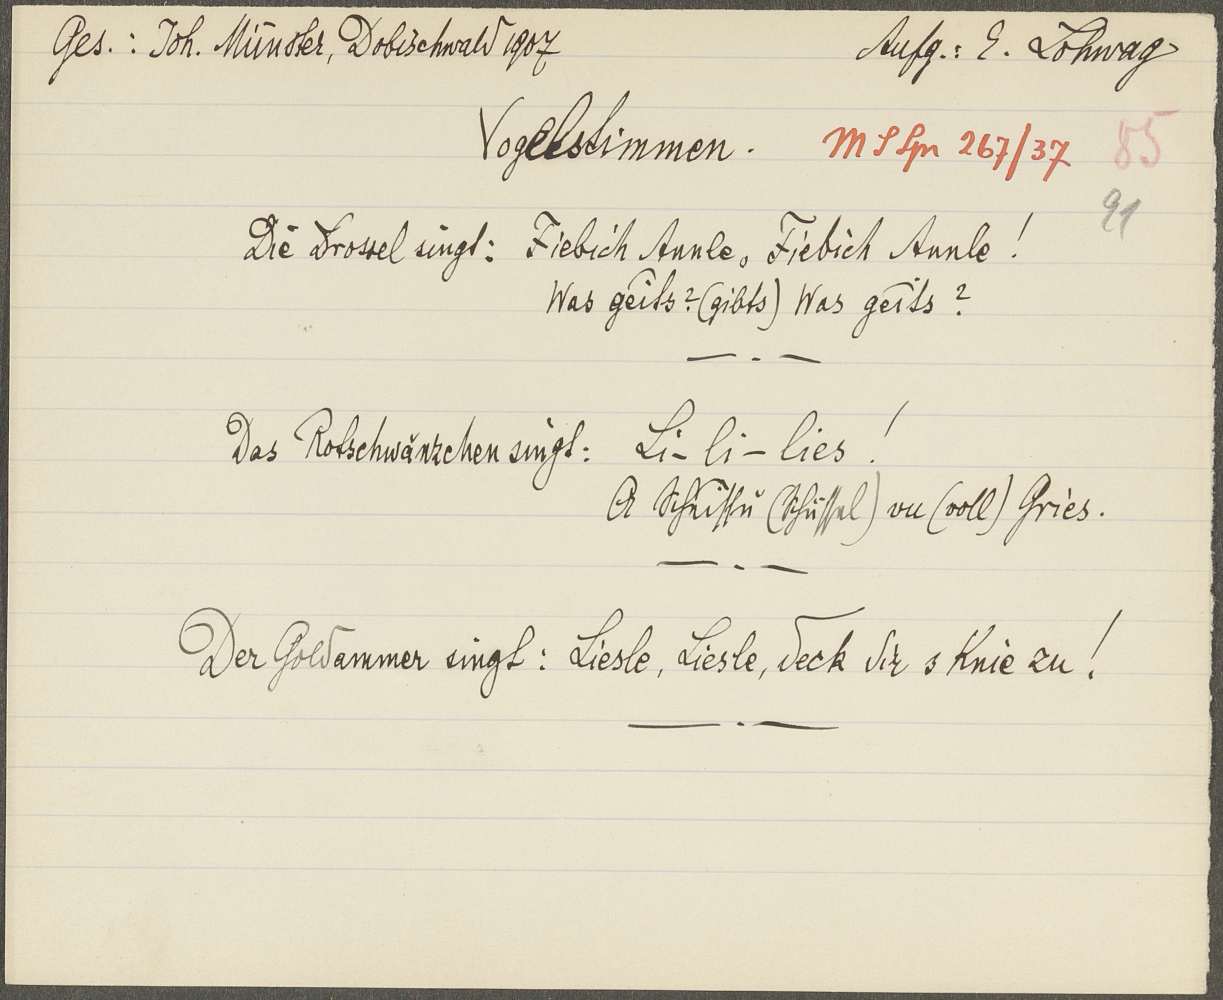 Ges.: Joh. Münster, Dobischwald 1907
Aufg.: E. Lohwag
Vogelstimmen.
M S Spr 267/37
85
91
Die Drossel singt: Fiebich Annle, Fiebich Annle!
Was geits? (gibts) Was geits?
Das Rotschwänzchen singt: Li-li-lies!
A Scheissu (Schüssel) vu (voll) Gries.
Der Goldammer singt: Liesle, Liesle, deck dir s Knie zu!